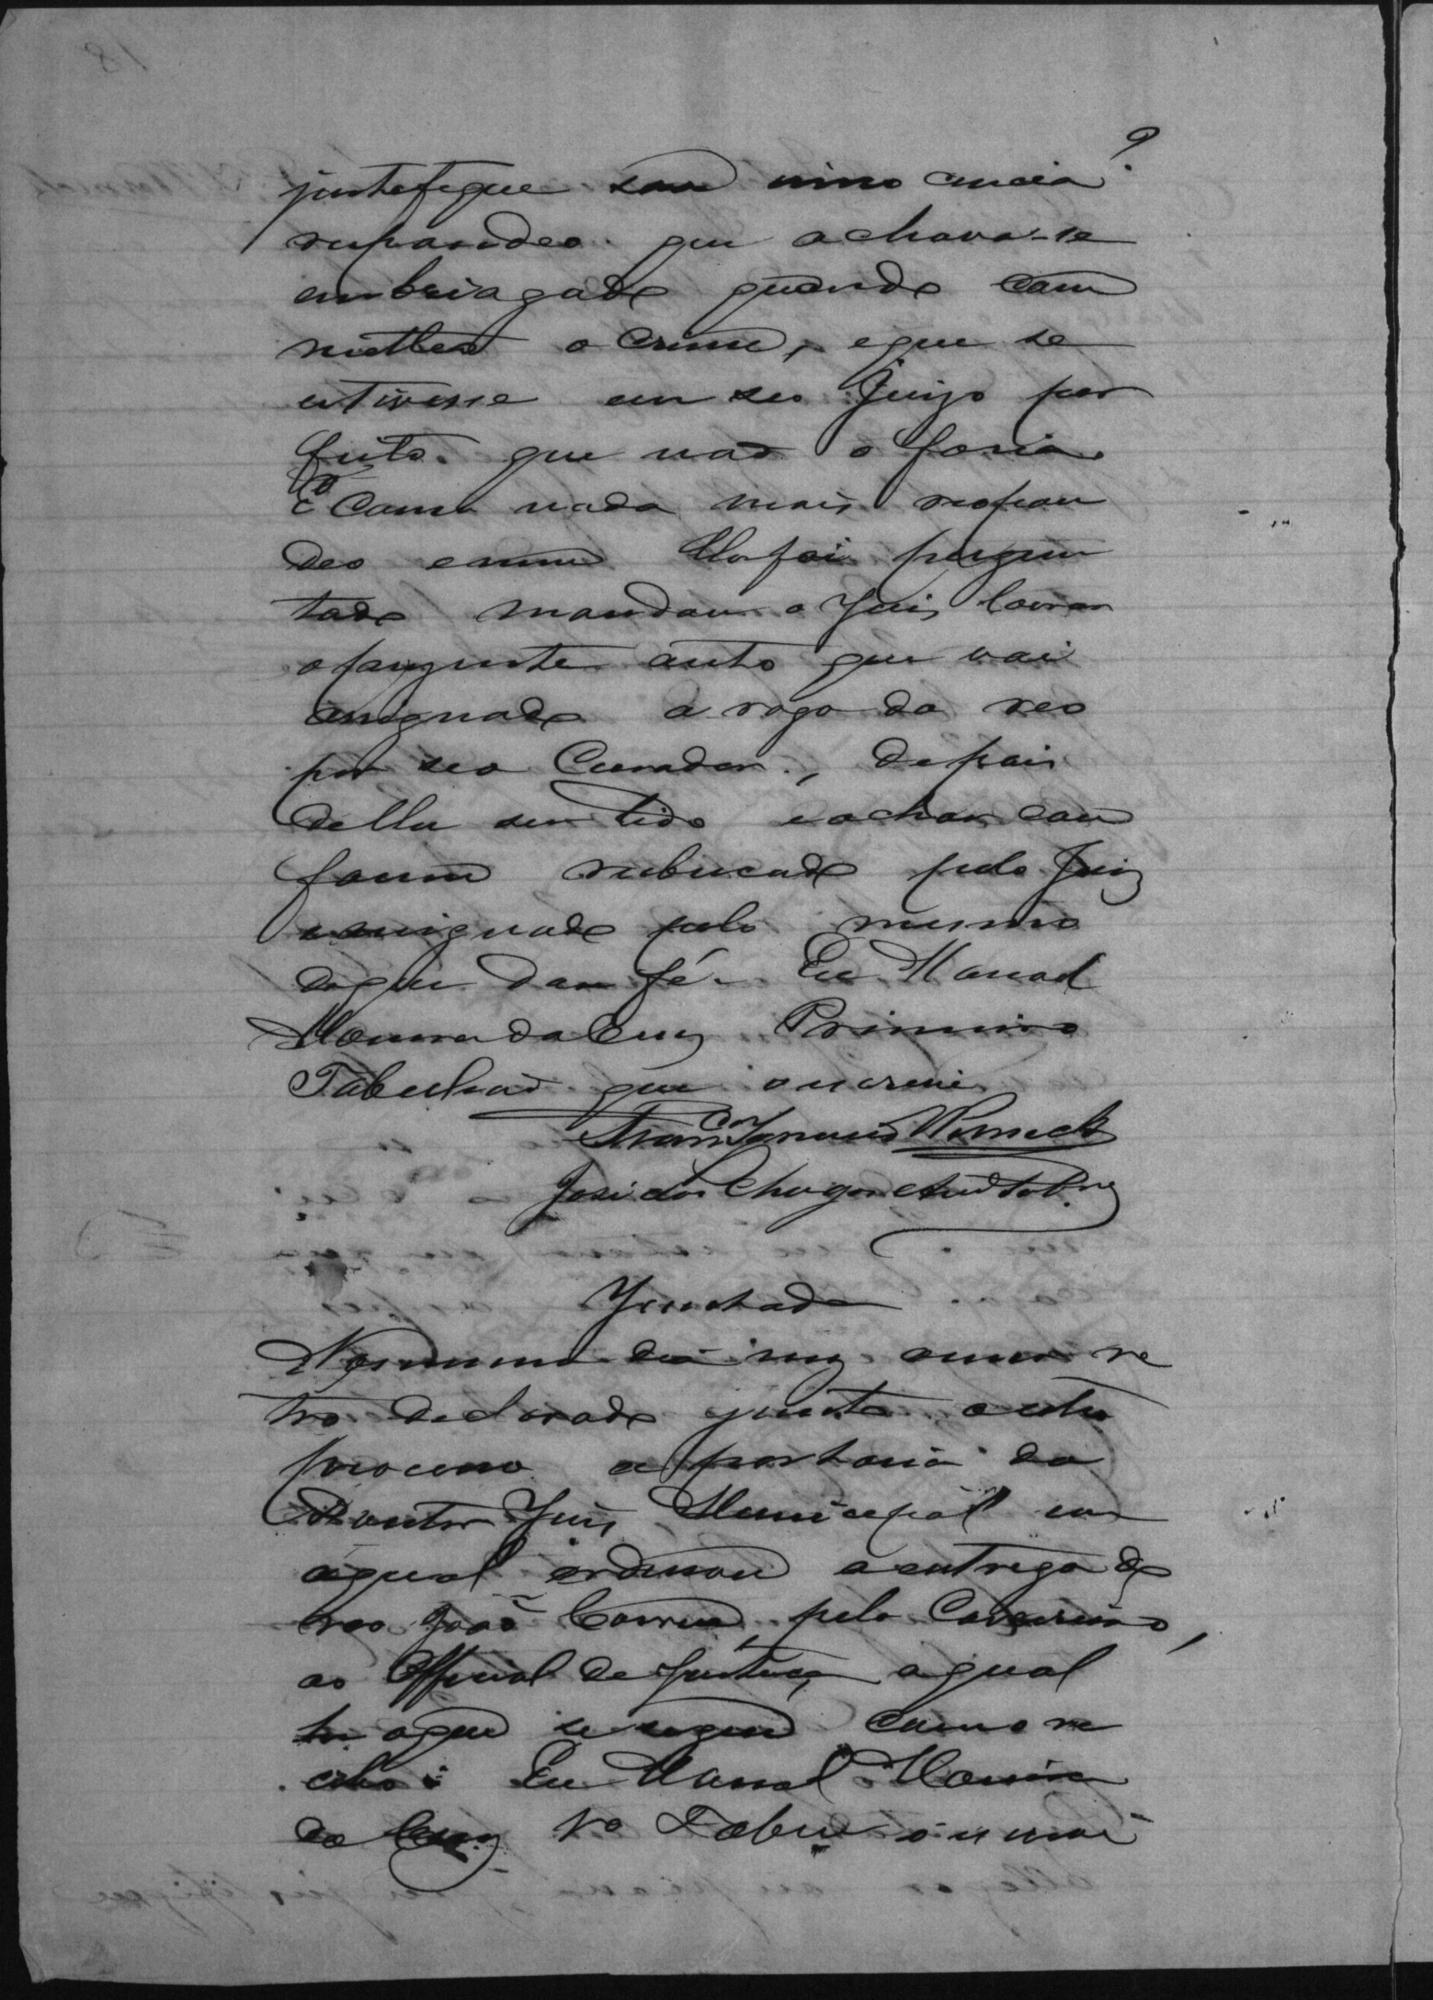 justefique sua inno cencia?
respondeo que achava-se
embriagado quando com
metteo o crime, e que se
estivesse em seo Juizo per
feito que não o faria
E como nada mais respon
deo e nem lhe foi pergun
tado mandou o Juis lavrar
o prezente auto que vai
assignado a rogo do reo
por seo Curador, depois
delle ser lido e achar con
forme rubricado pelo Juiz
e assignado pelo mesmo
do que dou fé. Eu Manoel
Moura da Cruz Primeiro
Tabeliaõ que o escrevi
Franco Ignacio Werneck
José das Chagas Andrade
Juntada
No mesmo dia mez e anno re
tro declarado junto a este
processo a portaria do
Doutor Juis Municipal em
a qual ordenou a entrega do
reo João Correa, pelo Carcereiro,
ao Official de Justiça, a qual
he a que se segue como re
cibo. Eu Manoel Moura
da Cruz 1º Tabeam o escrevi